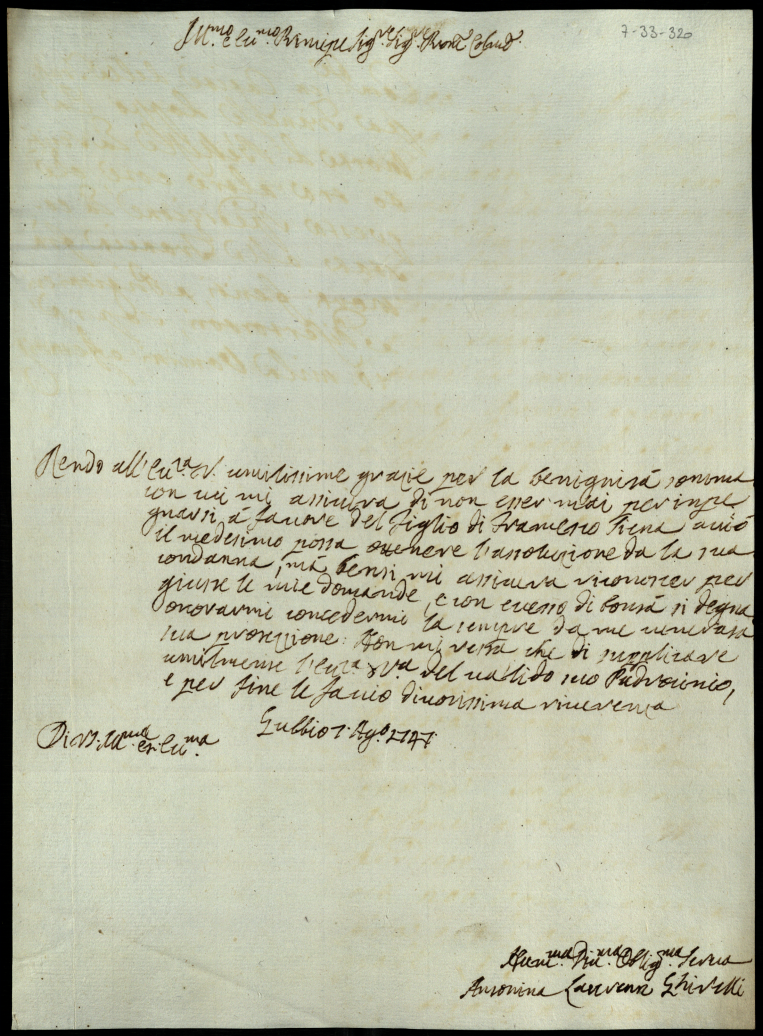 Ill.mo e Rev.mo Sig.re Sig.re Pron.e Colend.o
7-33-320
Rendo all'Em.za V. umilissime grazie per la benignità somma
con cui mi assicura di non esser mai per impe
gnarsi à favore del figlio di Francesco Fiena acciò
il medesimo possa ottenere l'assoluzione da la sua
condanna, mà bensì mi assicura riconoscer per
giuste le mie domande, e con eccesso di bontà si degna
onorarmi concedermi la sempre da me venerata
sua protezione. Non mi resta che di supplicare
umilmente l'Em.za V.ra del valido suo Padrocinio,
e per fine le faccio divotissima riverenza
Di V. Ill.ma e Rev.ma Gubbio 7. Ago. 1747.
Um.ma Div.ma Oblig.ma Serva
Antonina Ghirelli